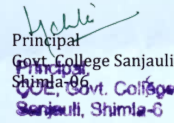 Principal
Govt. College Sanjauli
Shimla-06
Principal
COE Govt. College
Sanjauli, Shimla-6